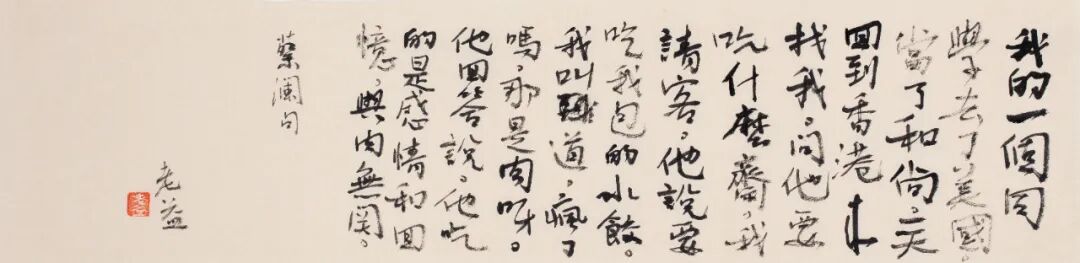 我的一個同
學去了美國。
當了和尚。一天
回到香港来
找我。問他要
吃什麼齋,我
請客,他說要
吃我包的水餃。
我叫道,瘋了
嗎,那是肉呀。
他回答說,他吃
的是感情和回
憶,與肉無関。
蔡瀾句
老益